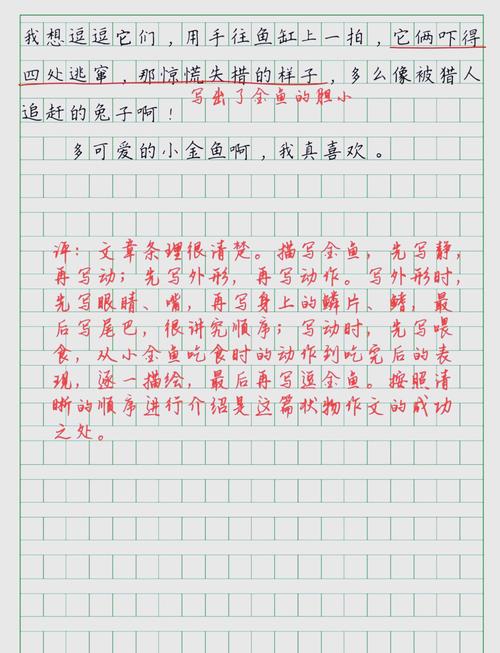 我想逗逗它们，用手往鱼缸上一拍，它俩吓得
四处逃窜，那惊慌失措的样子，多么像被猎人
写出了金鱼的胆小
追赶的兔子啊！
多可爱的小金鱼啊，我真喜欢。
评：文章条理很清楚。描写金鱼，先写静，
再写动；先写外形，再写动作。写外形时，
先写眼睛、嘴，再写身上的鳞片、鳍，最
后写尾巴，很讲究顺序；写动时，先写喂
食，从小金鱼吃食时的动作到吃完后的表
现，逐一描绘，最后再写逗金鱼。按照清
晰的顺序进行介绍是这篇状物作文的成功
之处。